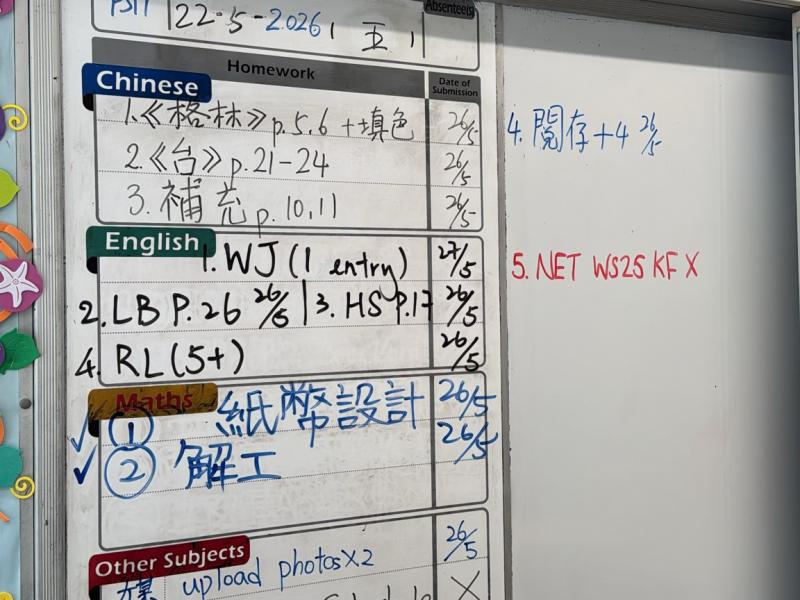 22.5-2026 五
Absentee(s)
Homework
Date of Submission
Chinese
1.《格林》p.5,6 +填色 26/5
2.《台》p.21-24 26/5
3. 補充 p.10,11 26/5
4. 閱存+4 26/5
English
1. WJ (1 entry) 27/5
2. LB P.26 26/5 | 3. HS p.17 26/5
4. RL (5+) 26/5
5. NET WS25 KF X
Maths
✓ ① 紙幣設計 26/5
✓ ② 解工 26/5
Other Subjects
upload photos×2 26/5
X